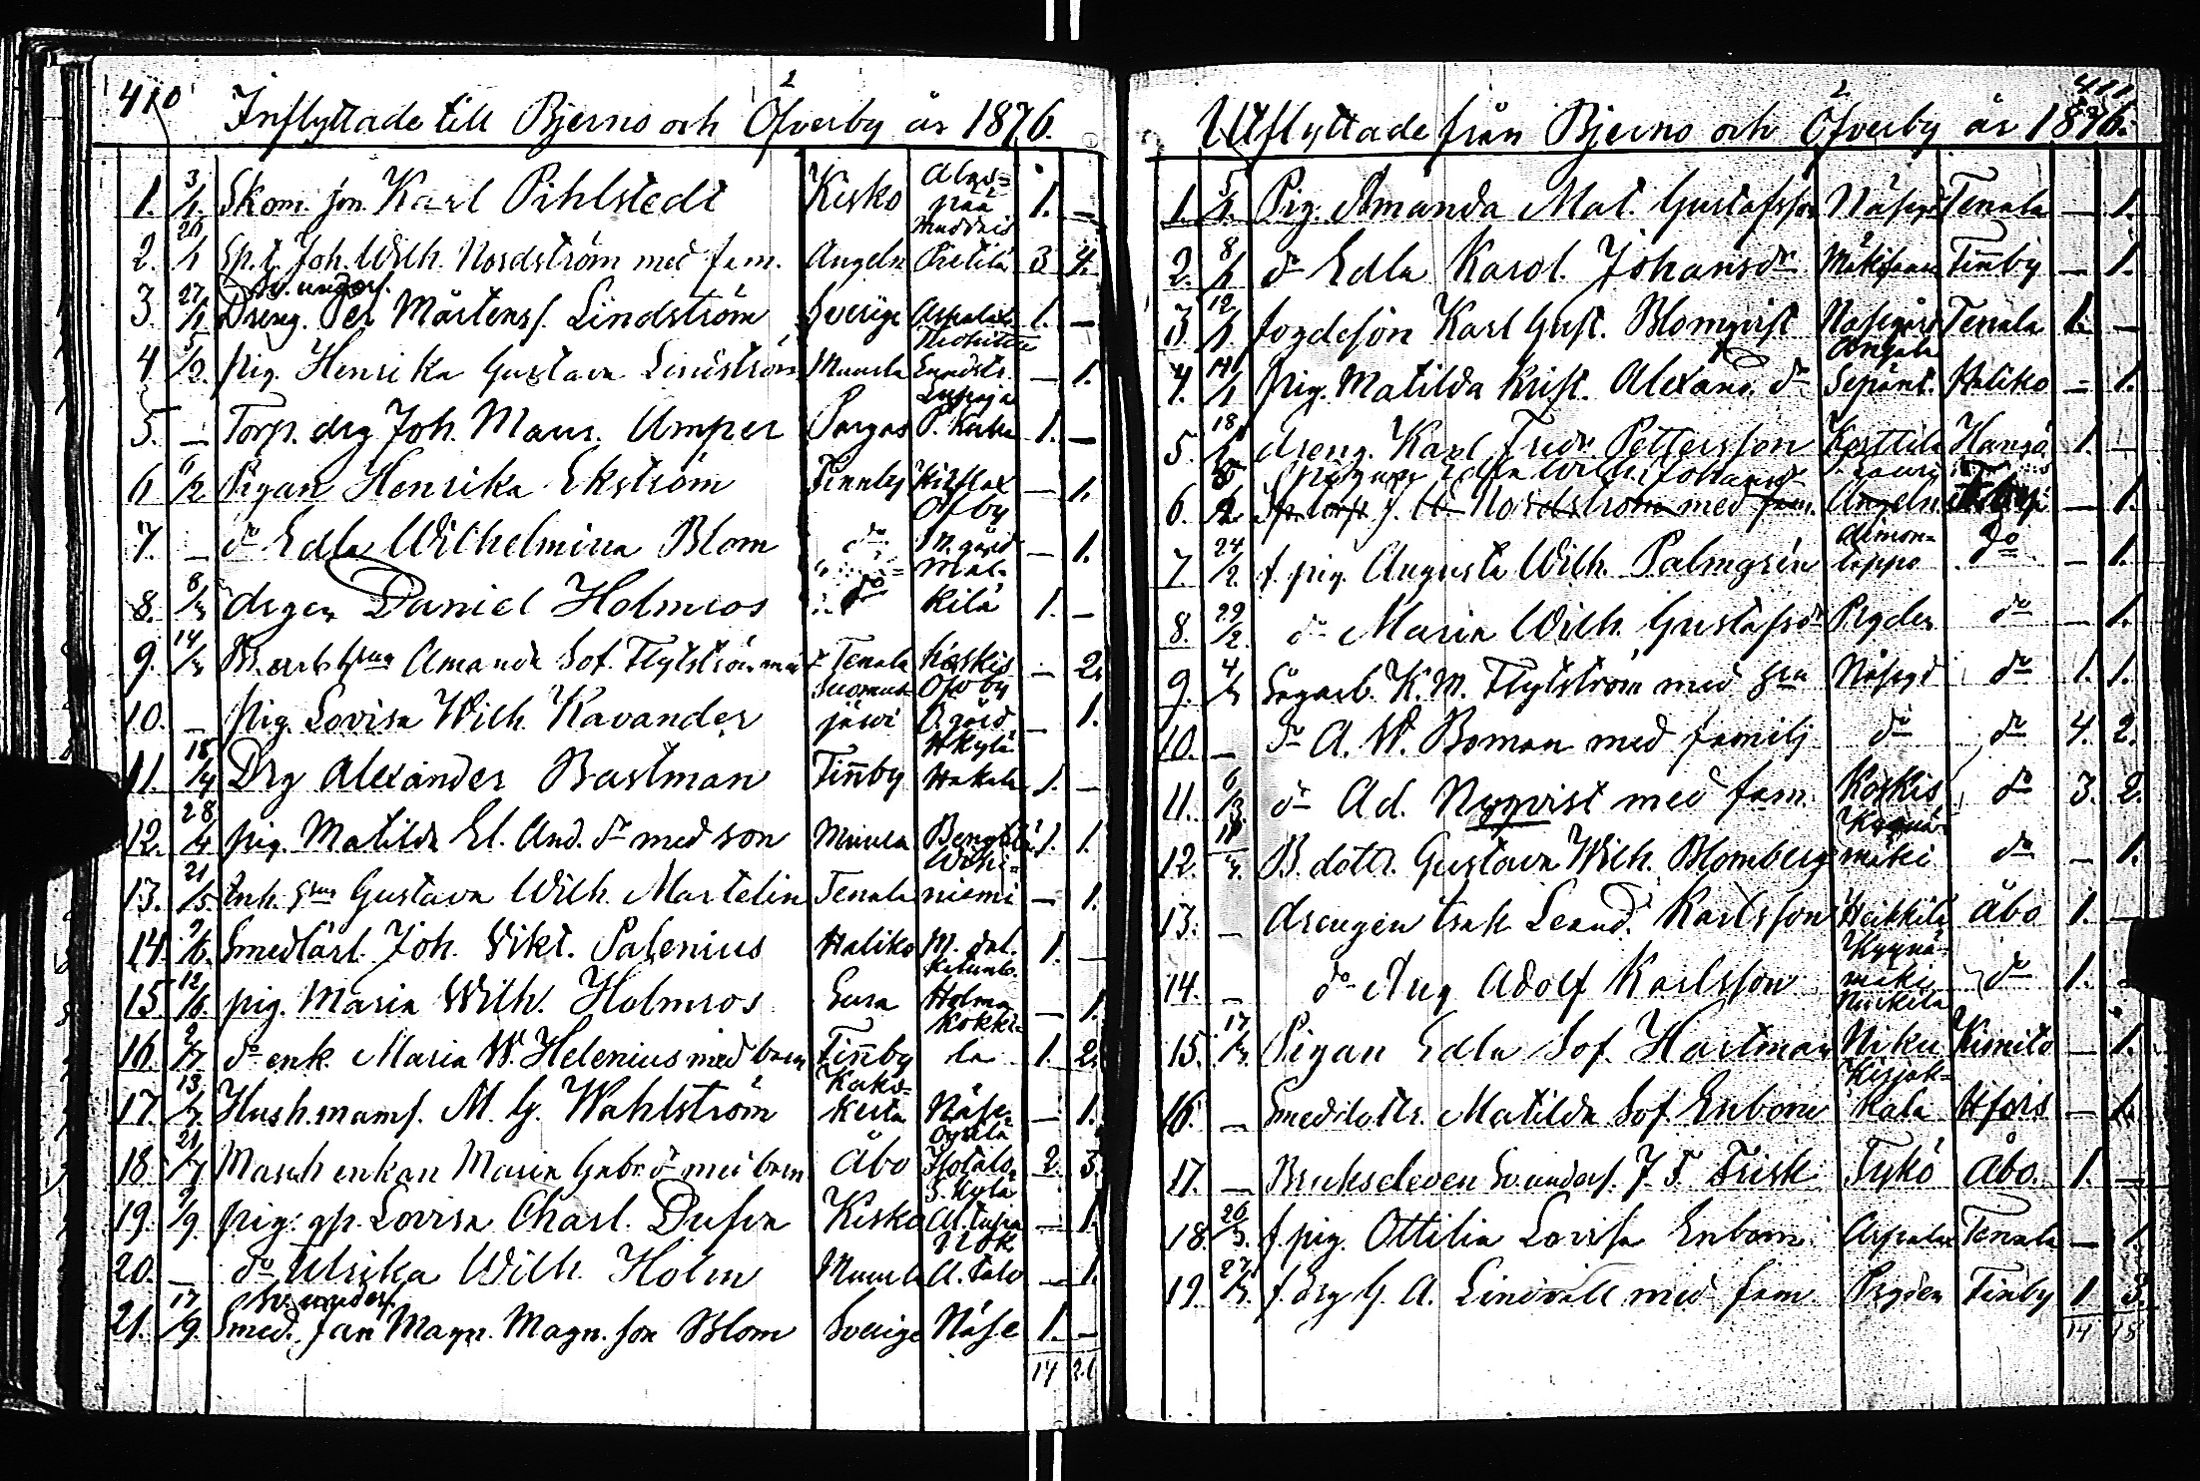 410
Inflyttade till Bjerno och Öfverby år 1876.
1. 3/1 Skom. son. Karl Pihlstedt Kisko 1. —
2. 20/1 Sp.t. Joh. Wilh. Nordström med fam. Angeln Pietilä 3 4.
Sv. unders.
3. 27/1 Dreng. Per Mårtenss. Lindström Sverige 1. —
4 5/2. pig. Henrika Gustava Lindström Muurla — 1.
5. — Torp. drg Joh. Maur. Amper Pargas 1. —
6 6/2 Pigan Henrika Ekström Finnby Kirflax — 1.
7. — do Edla Wilhelmina Blom do Öfby — 1.
8. 8/3 drgen Daniel Holmros do Mäkilä 1. —
9. 14/3 Amanda Sof. Flytström Tenala Koskis — 2.
10. — pig. Lovisa Wilh. Kavander Suomusjärvi Öfvby — 1.
11. 18/4 Drg Alexander Bastman Finnby Hkylä Hakala 1. —
12. 28/4 pig. Matilda El. And. dr med son Muurla 1. 1.
13. 21/5 Enh. Gustava Wilh. Martelin Tenala niemi — 1.
14. 9/6. Smedlärl. Joh. Vikt. Palenius Haliko M. dal. 1. —
15. 12/6. pig. Maria Wilh. Holmros Holma — 1.
16. 2/7 do enk. Maria W. Helenius med barn Finnby Kokkila 1. 2.
17. 13/7 Hush.mams. M. G. Wahlström Kakskerta Näse — 1.
18. 21/7 Masch enkan Maria Gabr. dr med barn Åbo 2. 3.
19. 9/9. pig. gp. Lovisa Charl. Dufva Kisko — 1.
20. — do Ulrika Wilh. Holm Muurla — 1.
Sv. unders.
21. 17/9. Smed. Jan Magn. Magn.son Blom Sverige Näse 1. —
17 26
411
Utflyttade från Bjerno och Öfverby år 1876.
1. 5/1. Pig. Amanda Mat. Gustafsson Tenala — 1.
2. 8/1 do Edla Karol. Johansdr Finnby — 1.
3 12/1 fogdeson Karl Gust. Blomqvist Näsegård Tenala 1. —
4. 14/1 pig. Matilda Krist. Alexand. dr Angela Sepänt. Haliko — 1.
5. 18/1 dreng. Karl Fredr Pettersson Kosttila Hangö 1. —
6. J. W. Nordström med fam. Angeln — 1.
7 24/2. f. pig. Augusta Wilh. Palmgrén do — 1.
8. 29/2. do Maria Wilh. Gustafsdr Prgden do — 1.
9. 4/3 Sågarb. K. M. Flytström med Näsegd do 1. 1.
10. — do A. W. Boman med familj do do 4. 2.
11. 6/3 do Ad. Nyqvist med fam. Koskis do 3. 2.
12. B. dottr. Gustava Wilh. Blomberg mäki do — 1.
13. — drengen Isak Leand. Karlsson Heikkilä Åbo 1. —
14. — do Aug Adolf Karlsson Kyynämäki do 1.
15. 17/3 Pigan Edla Sof. Hartman Niku Kimito — 1.
16. — Smedsdottr. Matilda Sof. Enbom Kirjakkala Hfors — 1.
17. — Brukseleven Sv. unders. J. F. Frisk Tykö Åbo. 1. —
18. f. pig. Ottilia Lovisa Enbom Tenala — 1
19. 27/3. f. drg G. A. Lindvall med fam Prgden Finby 1 3.
14 18